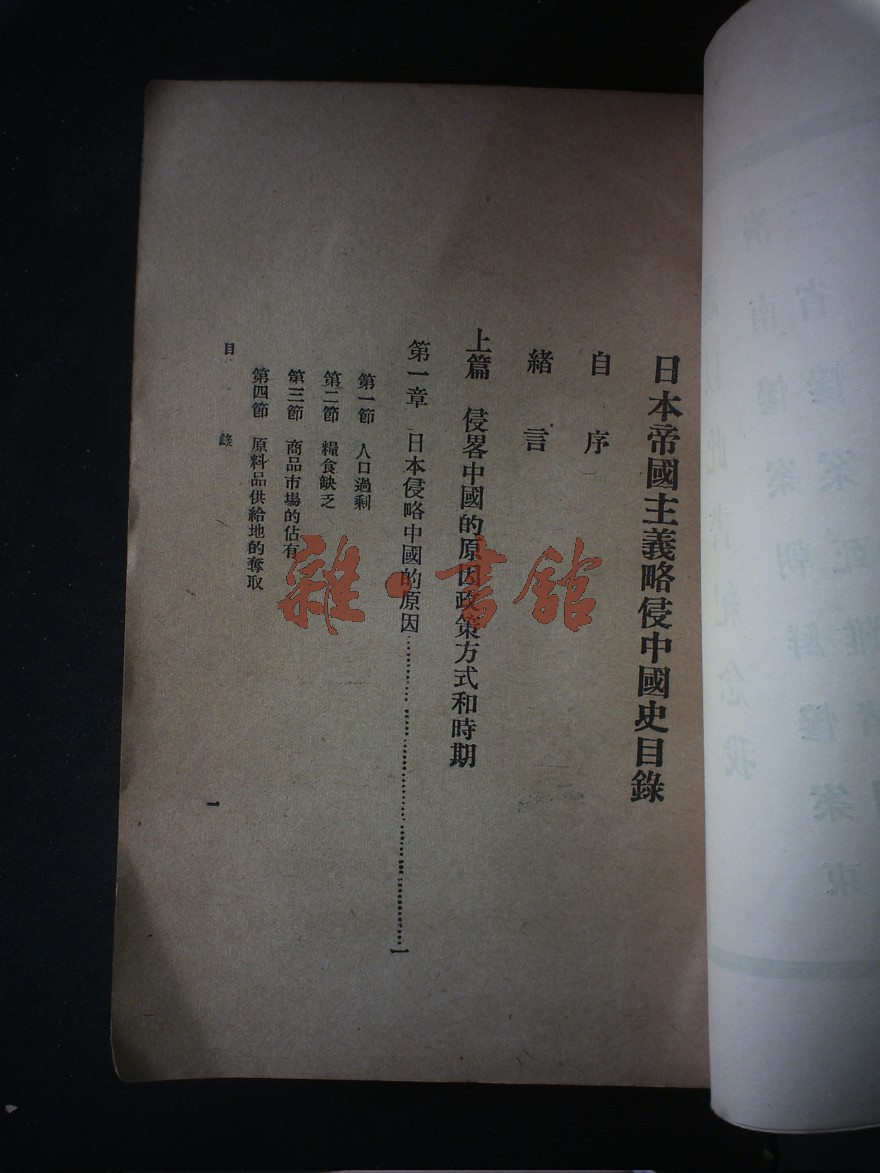 日本帝國主義略侵中國史目錄
自序
緒言
上篇 侵畧中國的原因政策方式和時期
第一章 日本侵略中國的原因……一
第一節 人口過剩
第二節 糧食缺乏
第三節 商品市場的佔有
第四節 原料品供給地的奪取
目錄
一
雜·書館